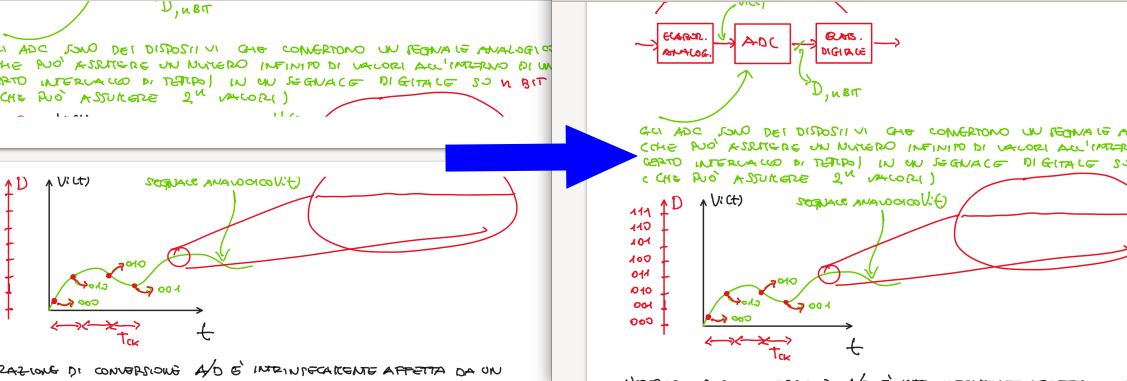 D, n BIT
ADC SONO DEI DISPOSITIVI CHE CONVERTONO UN SEGNALE ANALOGICO
CHE PUÒ ASSUMERE UN NUMERO INFINITO DI VALORI ALL'INTERNO DI UN
CERTO INTERVALLO DI TEMPO) IN UN SEGNALE DIGITALE SU n BIT
(CHE PUÒ ASSUMERE 2ⁿ VALORI)
D
Vi(t)
SEGNALE ANALOGICO Vi(t)
010
010
001
000
t
TCK
DI CONVERSIONE A/D È INTRINSECAMENTE AFFETTA DA UN
ELABOR.
ANALOG.
ADC
ELAB.
DIGITALE
D, n BIT
GLI ADC SONO DEI DISPOSITIVI CHE CONVERTONO UN SEGNALE
(CHE PUÒ ASSUMERE UN NUMERO INFINITO DI VALORI ALL'INTER
CERTO INTERVALLO DI TEMPO) IN UN SEGNALE DIGITALE SU
(CHE PUÒ ASSUMERE 2ⁿ VALORI)
D
Vi(t)
SEGNALE ANALOGICO Vi(t)
111
110
101
100
011
010
001
000
010
010
001
000
t
TCK